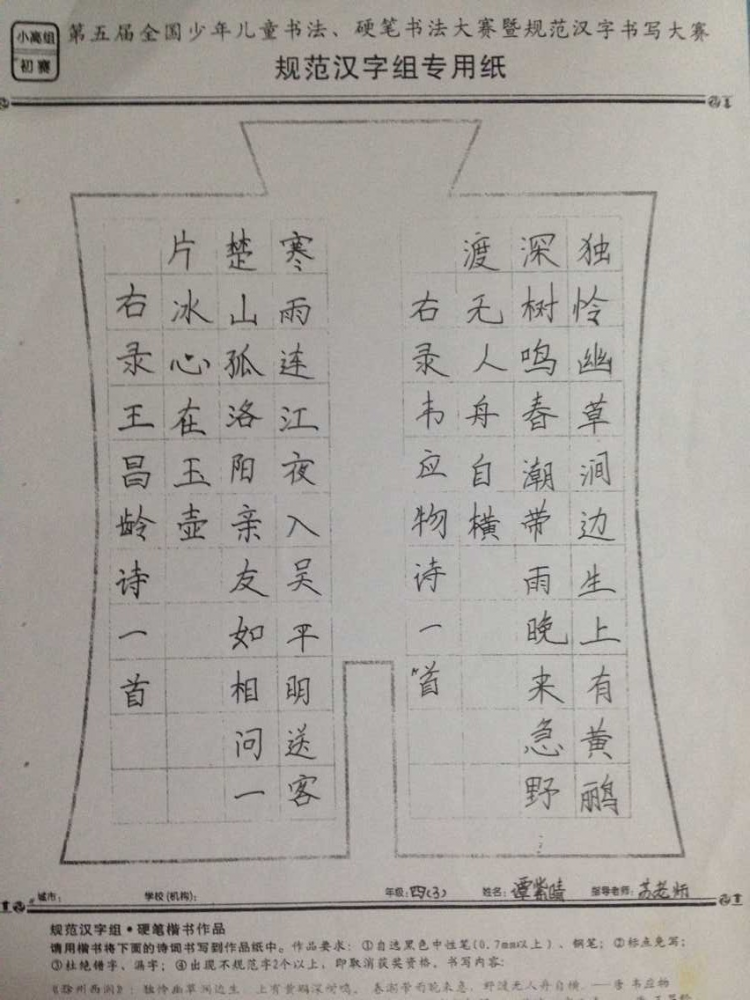 小高组
初赛
第五届全国少年儿童书法、硬笔书法大赛暨规范汉字书写大赛
规范汉字组专用纸
独怜幽草涧边生上有黄鹂
深树鸣春潮带雨晚来急野
渡无人舟自横
右录韦应物诗一首
寒雨连江夜入吴平明送客
楚山孤洛阳亲友如相问一
片冰心在玉壶
右录王昌龄诗一首
城市： 学校(机构)： 年级:四(3) 姓名:谭紫晴 指导老师:苏老师
规范汉字组·硬笔楷书作品
请用楷书将下面的诗词书写到作品纸中。作品要求：①自选黑色中性笔(0.7mm以上)、钢笔；②标点免写；
③杜绝错字、漏字；④出现不规范字2个以上，即取消获奖资格。书写内容：
《滁州西涧》：独怜幽草涧边生，上有黄鹂深树鸣。春潮带雨晚来急，野渡无人舟自横。——唐·韦应物